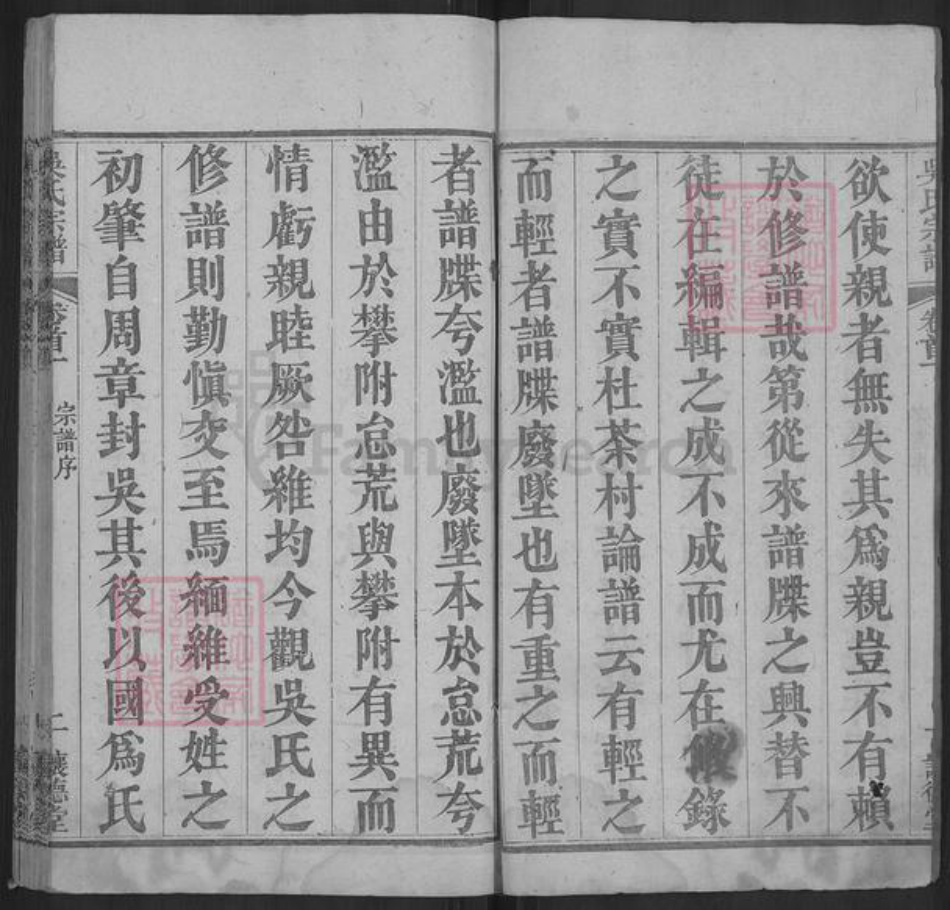 欲使親者無失其爲親豈不有賴
於修譜哉第從來譜牒之興替不
徒在編輯之成不成而尤在錄
之實不實杜茶村論譜云有輕之
而輕者譜牒廢墜也有重之而輕
者譜牒夸濫也廢墜本於怠荒夸
濫由於攀附怠荒與攀附有異而
情虧親睦厥咎維均今觀吳氏之
修譜則勤愼交至焉緬維受姓之
初肇自周章封吳其後以國爲氏
吳氏宗譜
卷首一
宗譜序
二
讓德堂
FamilySearch